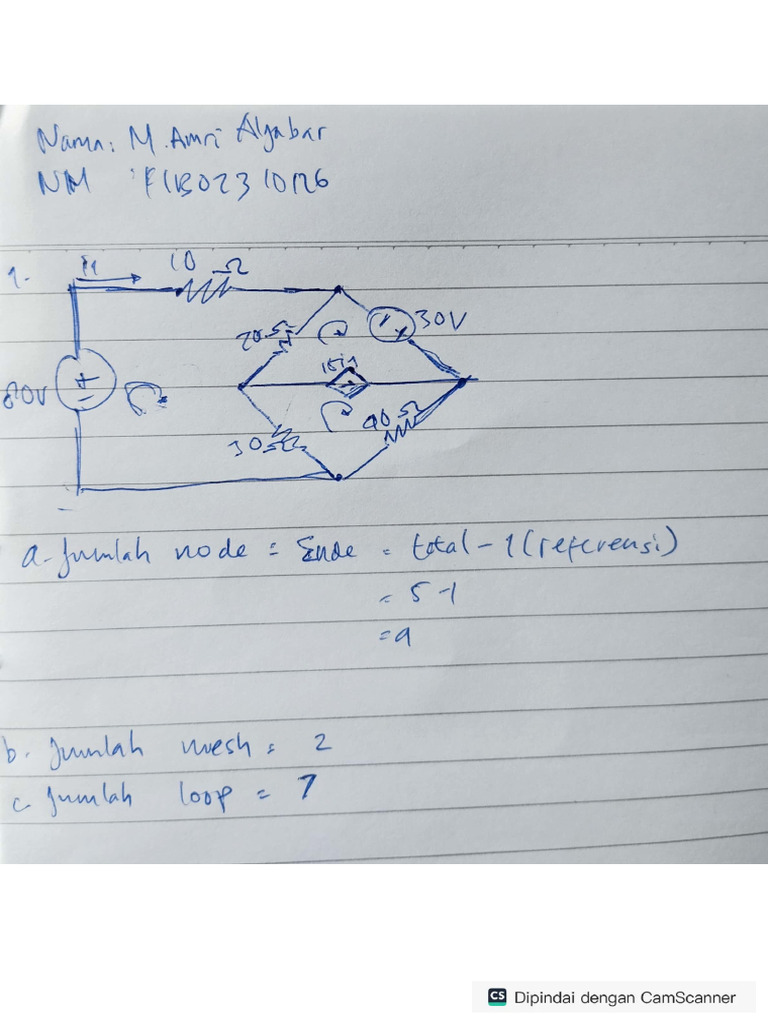 Nama: M. Amri Algabar
NIM : F1B02310126
1.
i1
10 Ω
20 Ω
30V
80V
15i1
30 Ω
40 Ω
a. Jumlah node = Σnode = total - 1 (referensi)
= 5 - 1
= 4
b. Jumlah mesh = 2
c. Jumlah loop = 7
CS Dipindai dengan CamScanner